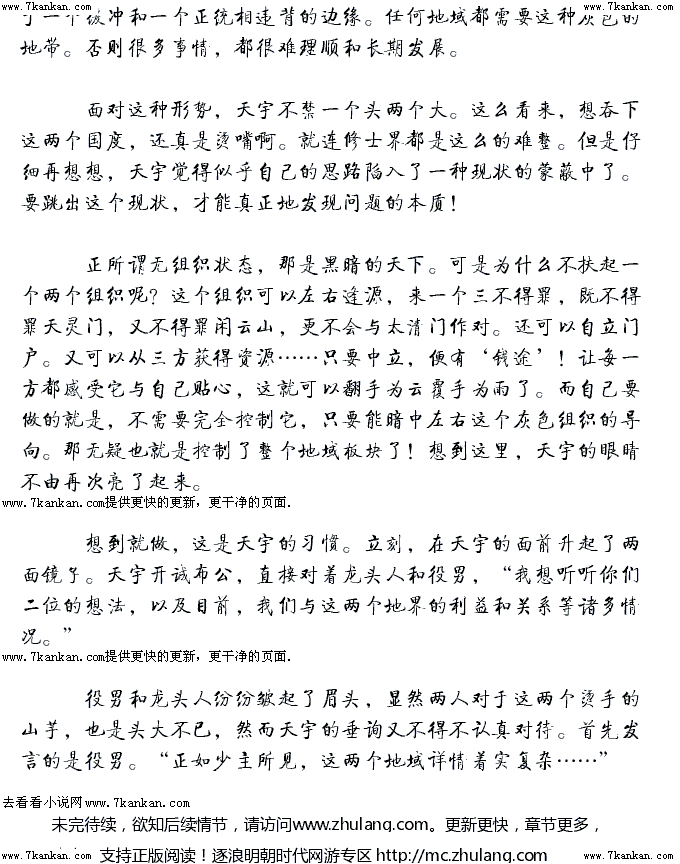 www.7kankan.com www.7kankan.com
了一个缓冲和一个正统相违背的边缘。任何地域都需要这种灰色的
地带。否则很多事情，都很难理顺和长期发展。
面对这种形势，天宇不禁一个头两个大。这么看来，想吞下
这两个国度，还真是烫嘴啊。就连修士界都是这么的难整。但是仔
细再想想，天宇觉得似乎自己的思路陷入了一种现状的蒙蔽中了。
要跳出这个现状，才能真正地发现问题的本质！
正所谓无组织状态，那是黑暗的天下。可是为什么不扶起一
个两个组织呢？这个组织可以左右逢源，来一个三不得罪，既不得
罪天灵门，又不得罪闲云山，更不会与太清门作对。还可以自立门
户。又可以从三方获得资源……只要中立，便有‘钱途’！让每一
方都感受它与自己贴心，这就可以翻手为云覆手为雨了。而自己要
做的就是，不需要完全控制它，只要能暗中左右这个灰色组织的导
向。那无疑也就是控制了整个地域板块了！想到这里，天宇的眼睛
不由再次亮了起来。
www.7kankan.com提供更快的更新，更干净的页面.
想到就做，这是天宇的习惯。立刻，在天宇的面前升起了两
面镜子。天宇开诚布公，直接对着龙头人和役男，“我想听听你们
二位的想法，以及目前，我们与这两个地界的利益和关系等诸多情
况。”
www.7kankan.com提供更快的更新，更干净的页面.
役男和龙头人纷纷皱起了眉头，显然两人对于这两个烫手的
山芋，也是头大不已，然而天宇的垂询又不得不认真对待。首先发
言的是役男。“正如少主所见，这两个地域详情着实复杂……”
去看看小说网www.7kankan.com
未完待续，欲知后续情节，请访问www.zhulang.com。更新更快，章节更多，
www.7kankan.com 支持正版阅读！逐浪明朝时代网游专区 http://mc.zhulang.com/ www.7kankan.com